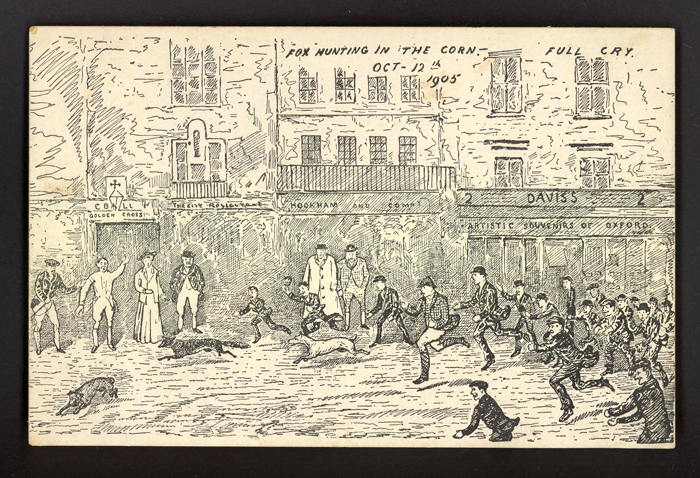 FOX HUNTING IN THE CORN.— FULL CRY.
OCT- 12th
1905
2 DAVIS'S 2
ARTISTIC SOUVENIRS OF OXFORD
HOOKHAM AND COMPY
THE CITY RESTAURANT
GOLDEN CROSS